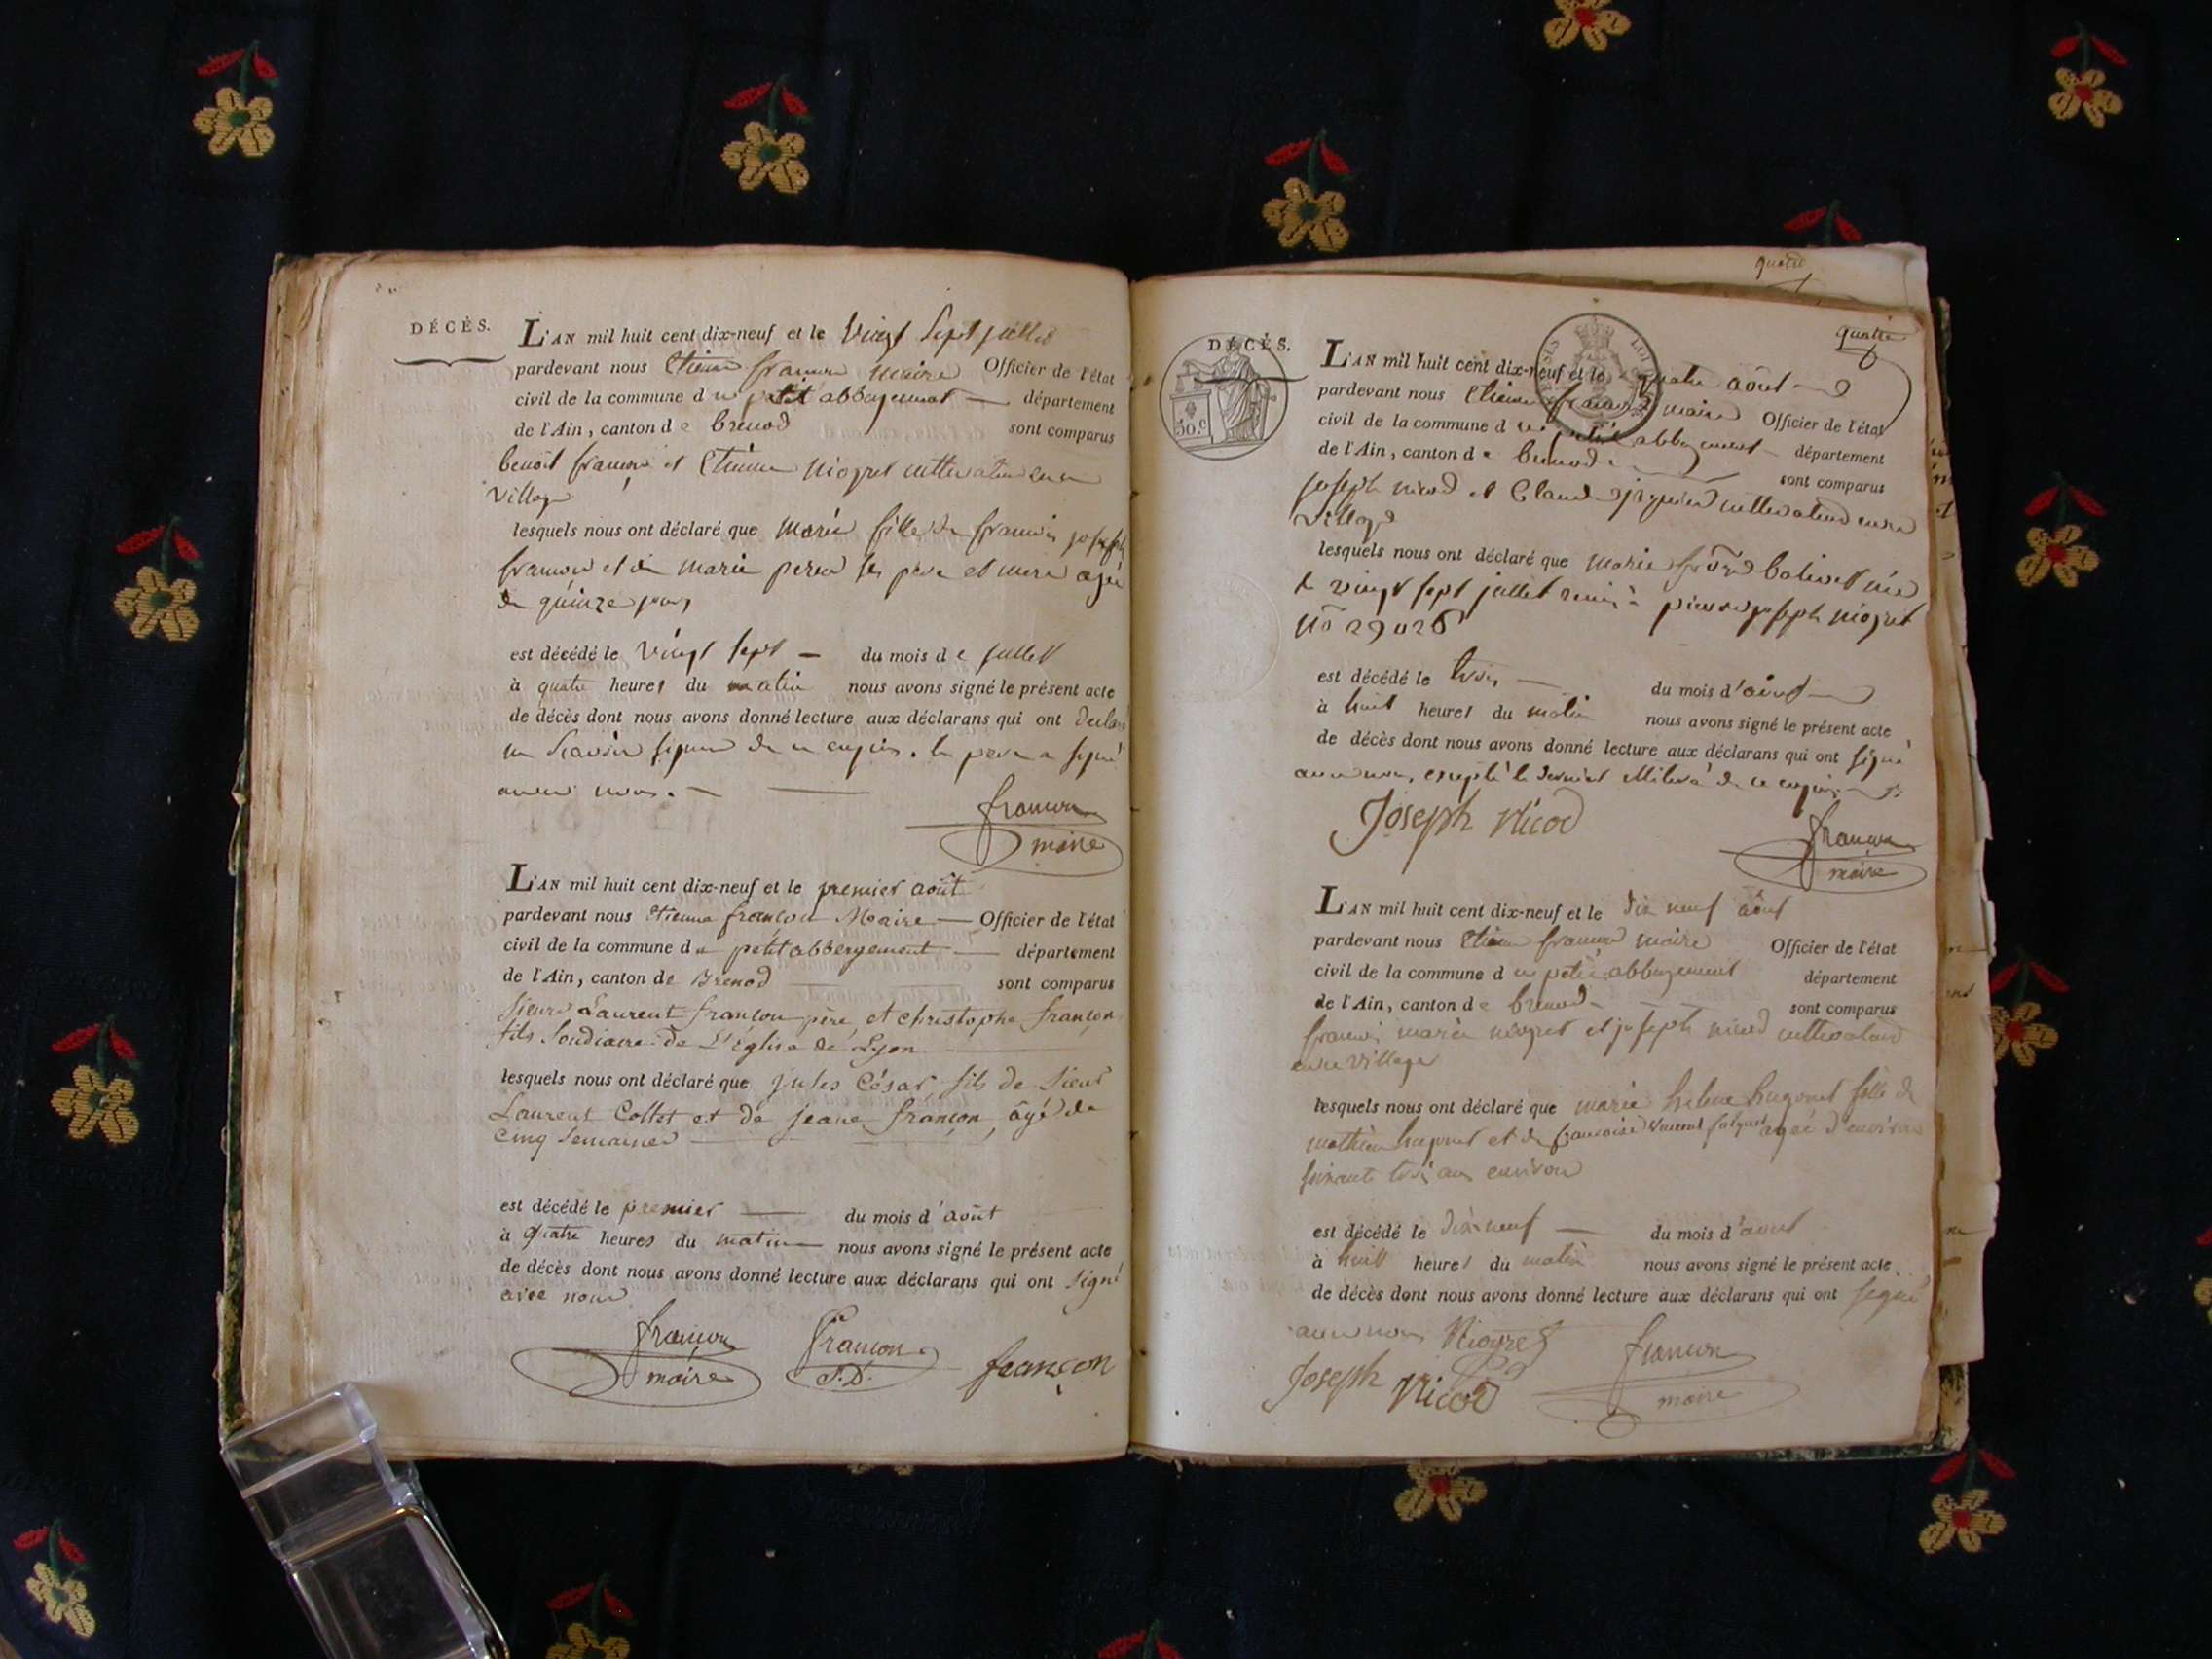 DÉCÈS.
L'AN mil huit cent dix-neuf et le vingt sept juillet
pardevant nous Etienne françon maire Officier de l'état
civil de la commune du petit abbergement département
de l'Ain, canton de brenod sont comparus
benoit françon et Etienne niogret cultivateur en ce
village
lesquels nous ont déclaré que Marie fille de françois joseph
françon et de marie ses père et mere agée
de quinze jours
est décédé le vingt sept du mois de juillet
à quatre heures du matin nous avons signé le présent acte
de décès dont nous avons donné lecture aux déclarans qui ont déclaré
ne scavoir signer de ce enquis. le pere a signé
avec nous.
françon
maire
L'AN mil huit cent dix-neuf et le premier août
pardevant nous etienne françon Maire Officier de l'état
civil de la commune de petit abbergement département
de l'Ain, canton de Brenod sont comparus
sieurs Laurent françon père et christophe françon
fils Soudiacre de L'Église de Lyon
lesquels nous ont déclaré que jules César fils de Sieur
Laurent Collet et de jeane françon, âgé de
cinq Semaines
est décédé le premier du mois d'août
à quatre heures du matin nous avons signé le présent acte
de décès dont nous avons donné lecture aux déclarans qui ont signé
avec nous
françon
maire
françon
S.D.
françon
quatre
quatre
DÉCÈS.
50.c
L'AN mil huit cent dix-neuf et le quatre août
pardevant nous Etienne françon maire Officier de l'état
civil de la commune du petit abbergement département
de l'Ain, canton de brenod sont comparus
joseph nicod et Claude cultivateurs en ce
village
lesquels nous ont déclaré que marie née
le vingt sept juillet remis à pierre joseph niogret
no 29026
est décédé le trois du mois d'août
à huit heures du matin nous avons signé le présent acte
de décès dont nous avons donné lecture aux déclarans qui ont signé
avec nous, excepté le dernier illiteré de ce enquis
Joseph Nicod
françon
maire
L'AN mil huit cent dix-neuf et le dix neuf août
pardevant nous Etienne françon maire Officier de l'état
civil de la commune du petit abbergement département
de l'Ain, canton de brenod sont comparus
françois marie niogret et joseph nicod cultivateurs
en ce village
lesquels nous ont déclaré que marie helene hugonet fille de
mathieu hugonet et de françoise agée d'environ
soixante trois ans environ
est décédé le dix neuf du mois d'août
à huit heures du matin nous avons signé le présent acte
de décès dont nous avons donné lecture aux déclarans qui ont signé
avec nous Niogret
françon
maire
Joseph Nicod